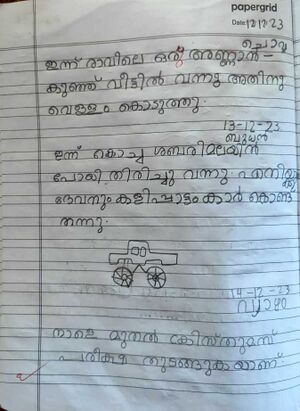 papergrid
Date: 12 12 23
ചൊവ്വ
ഇന്ന് രാവിലെ ഒരു അണ്ണാൻ-
കുഞ്ഞ് വീട്ടിൽ വന്നു അതിനു
വെള്ളം കൊടുത്തു.
13-12-23
ബുധൻ
ഇന്ന് കൊച്ച ശബരിമലയിൽ
പോയി തിരിച്ചു വന്നു. എനിയ്ക്കും
ദേവനും കളിപ്പാട്ടം കാർ കൊണ്ട
തന്നു.
14-12-23
വ്യാഴം
നാളെ മുതൽ ക്രിസ്തുമസ്
പരീക്ഷ തുടങ്ങുകയാണ്.